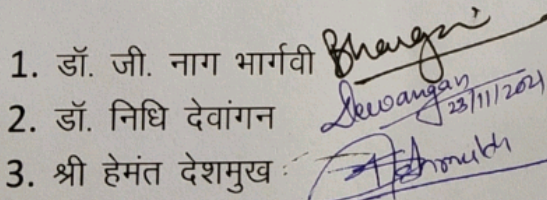 1. डॉ. जी. नाग भार्गवी Bhargavi
2. डॉ. निधि देवांगन Dewangan 23/11/2021
3. श्री हेमंत देशमुख